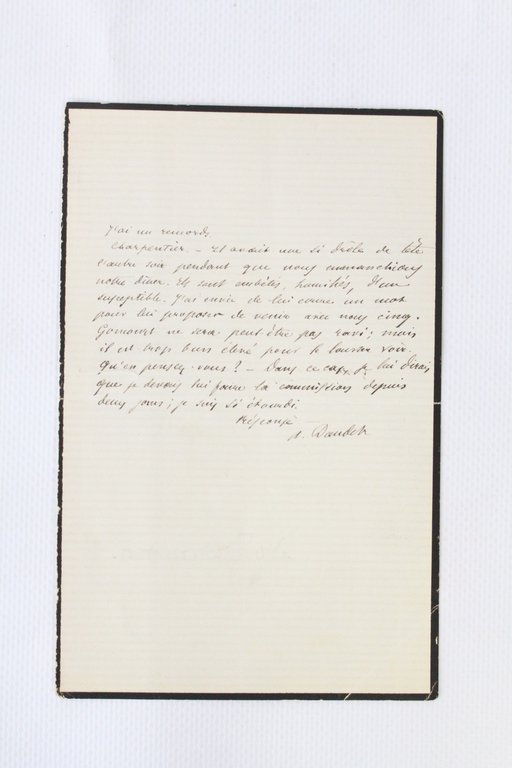 J'ai un remords
Charpentier. – Il avait une si drôle de tête
l'autre soir pendant que nous manigancions
notre dîner. Ils sont embêtés, humiliés, d'un
susceptible. J'ai envie de lui écrire un mot
pour lui proposer de venir avec nous cinq.
Goncourt ne sera peut être pas ravi ; mais
il est trop bien élevé pour le laisser voir.
qu'en pensez-vous ? – Dans ce cas, je lui dirais
que je devais lui faire la commission depuis
deux jours ; je suis si étourdi.
Réponse
A. Daudet